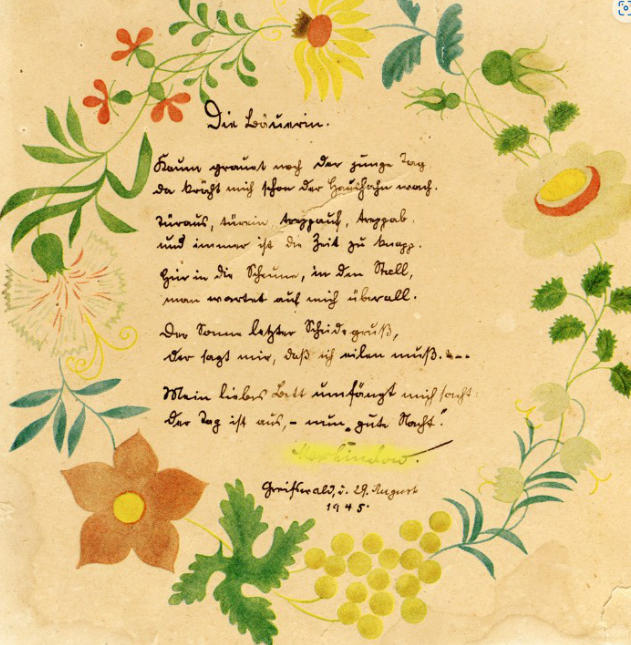 Die Bäuerin.
Kaum grauet noch der junge Tag
da kräht mich schon der Haushahn wach.
Türaus, türein, treppauf, treppab.
und immer ist die Zeit zu knapp.
in die Scheune, in den Stall,
man wartet auf mich überall.
Der Sonne letzter Scheidegruß,
der sagt mir, daß ich eilen muß.---
Mein liebes Bett umfängt mich sacht:
der Tag ist aus,- nun „gute Nacht".
Greifswald, d. 29. August
1945.